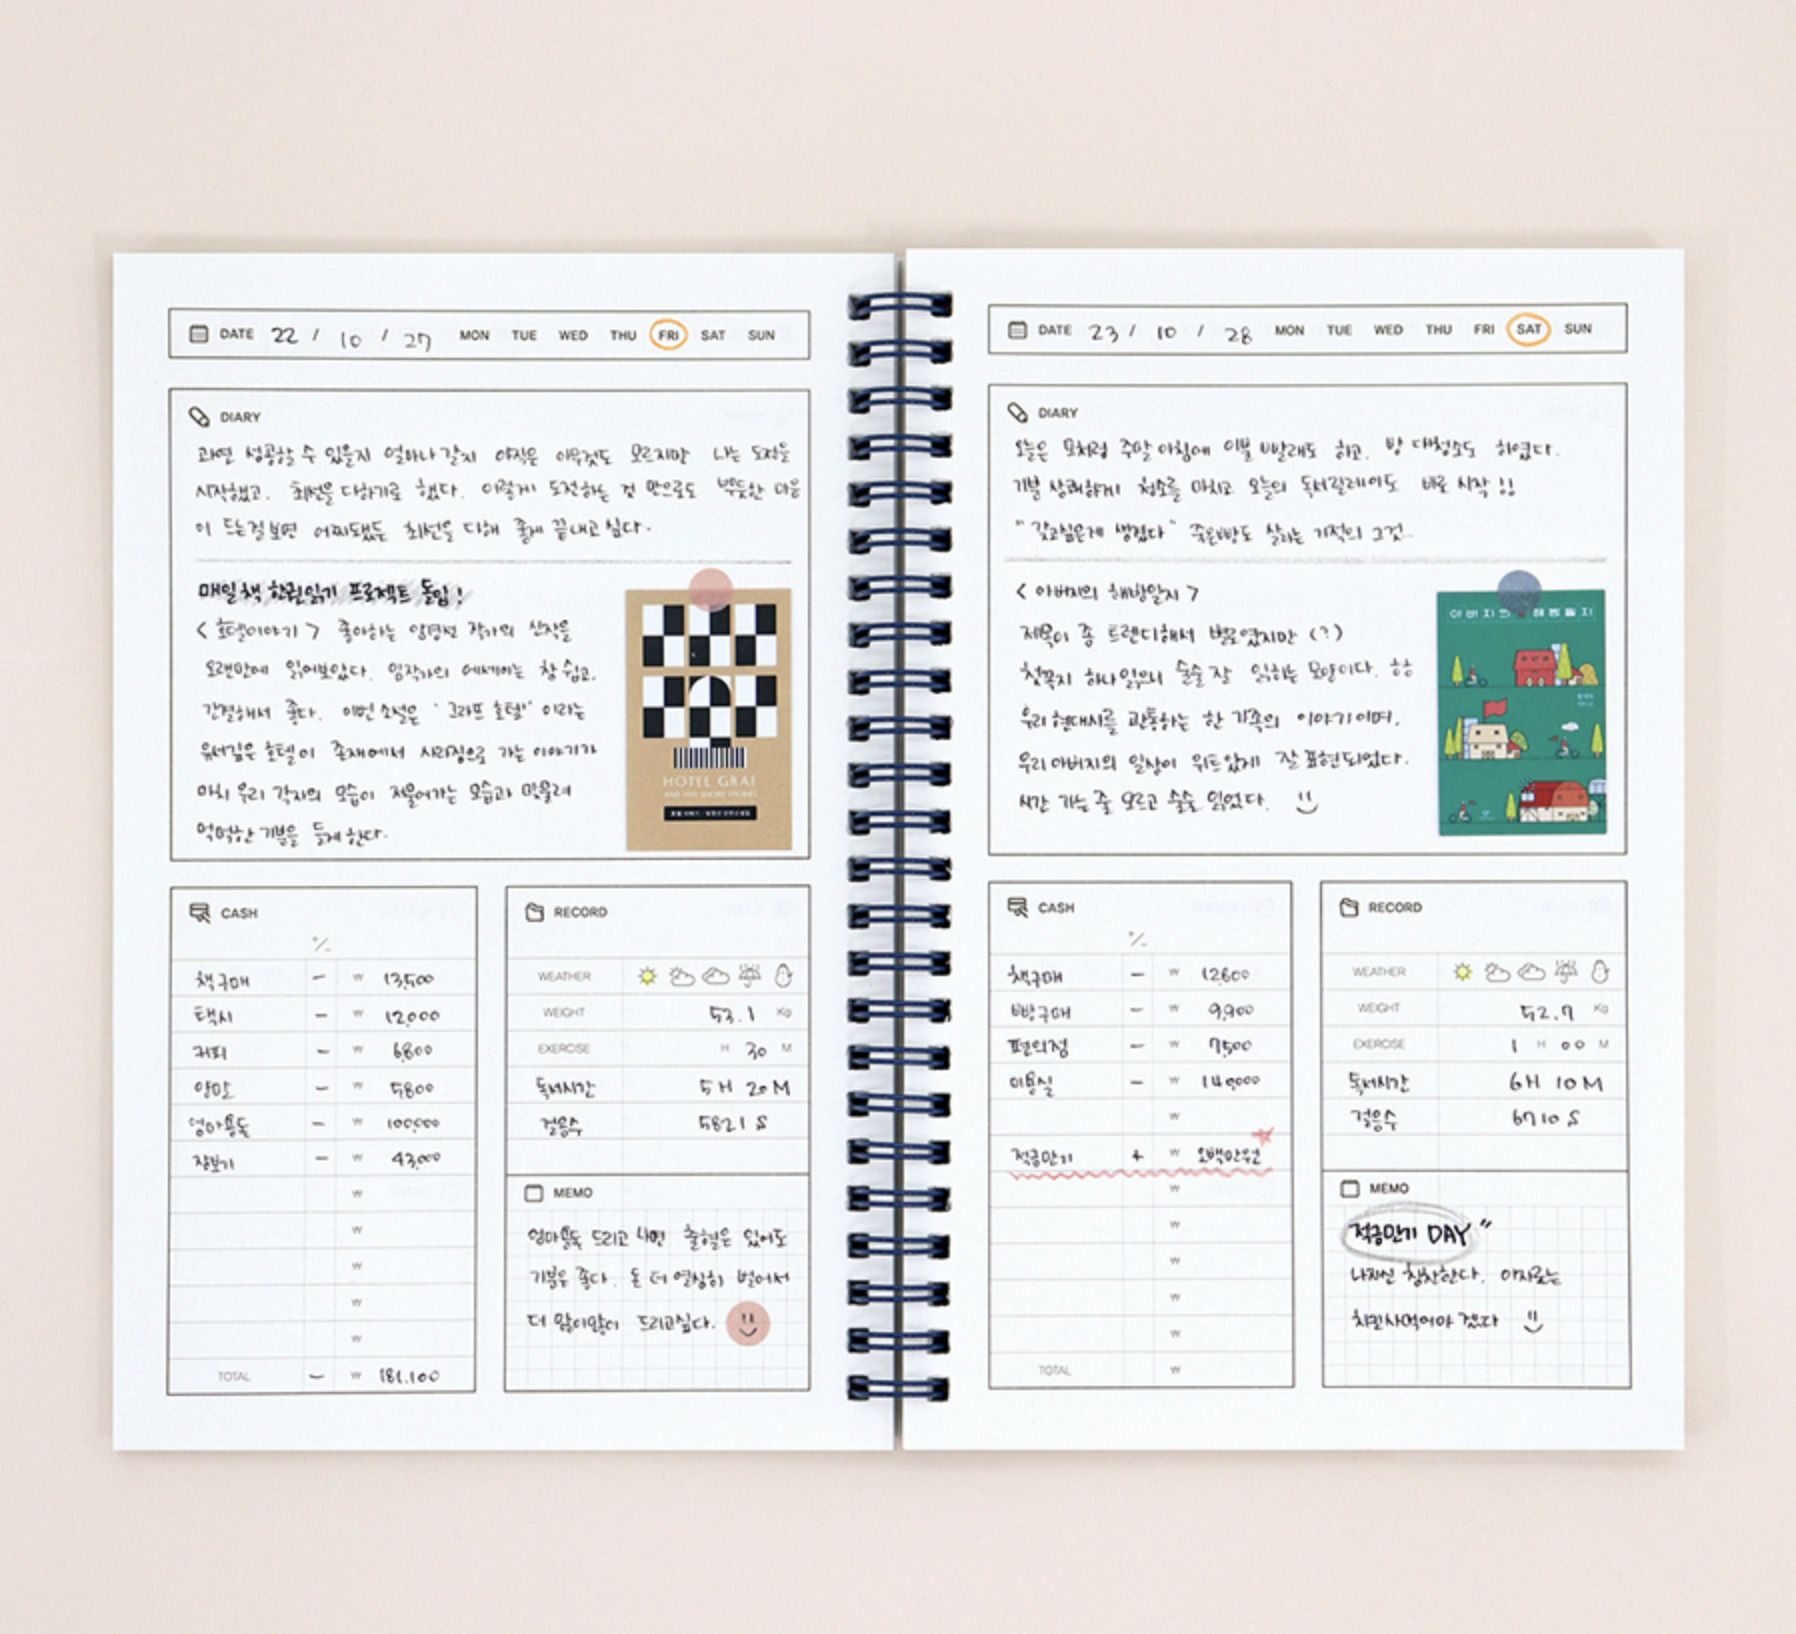 DATE 22 / 10 / 27 MON TUE WED THU FRI SAT SUN
DIARY
과연 성공할 수 있을지 얼마나 갈지 아직은 아무것도 모르지만 나는 도전을
시작했고, 최선을 다하기로 했다. 이렇게 도전하는 것 만으로도 뿌듯한 마음
이 드는걸 보면 어찌됐든 최선을 다해 좋게 끝내고 싶다.
매일 책 한권 읽기 프로젝트 돌입!
<호텔이야기> 좋아하는 임경선 작가의 신작을
오랜만에 읽어보았다. 임작가의 에세이는 참 쉽고,
간결해서 좋다. 이번 소설은 '그라프 호텔' 이라는
유서깊은 호텔이 존재에서 사라짐으로 가는 이야기가
마치 우리 각자의 모습이 저물어가는 모습과 맞물려
먹먹한 기분을 들게 한다.
HOTEL GRAF
CASH
+/-
책구매 - ₩ 13,500
택시 - ₩ 12,000
커피 - ₩ 6,800
양말 - ₩ 5,800
엄마용돈 - ₩ 100,000
장보기 - ₩ 43,000
₩
₩
₩
₩
₩
TOTAL - ₩ 181,100
RECORD
WEATHER
WEIGHT 53.1 Kg
EXERCISE H 30 M
독서시간 5H 20M
걸음수 5821 S
MEMO
엄마용돈 드리고 나면 출혈은 있어도
기분은 좋다. 돈 더 열심히 벌어서
더 많이많이 드리고싶다.
DATE 23 / 10 / 28 MON TUE WED THU FRI SAT SUN
DIARY
오늘은 모처럼 주말 아침에 이불 빨래도 하고, 방 대청소도 하였다.
기분 상쾌하게 청소를 마치고 오늘의 독서릴레이도 바로 시작!!
"갖고싶은게 생겼다" 죽은빵도 살리는 기적의 그것..
<아버지의 해방일지>
제목이 좀 트렌디해서 별로였지만 (?)
첫꼭지 하나 읽으니 술술 잘 읽히는 모양이다. ㅎㅎ
우리 현대사를 관통하는 한 가족의 이야기이며,
우리 아버지의 일상이 위트있게 잘 표현되었다.
시간 가는 줄 모르고 술술 읽었다.
아버지의 해방일지
CASH
+/-
책구매 - ₩ 12,600
빵구매 - ₩ 9,900
편의점 - ₩ 7,500
미용실 - ₩ 140,000
₩
적금만기 + ₩ 오백만원
₩
₩
₩
₩
₩
TOTAL ₩
RECORD
WEATHER
WEIGHT 52.7 Kg
EXERCISE 1 H 00 M
독서시간 6H 10M
걸음수 6710 S
MEMO
적금만기 DAY"
나자신 칭찬한다. 야식으로는
치킨사먹어야 겠다